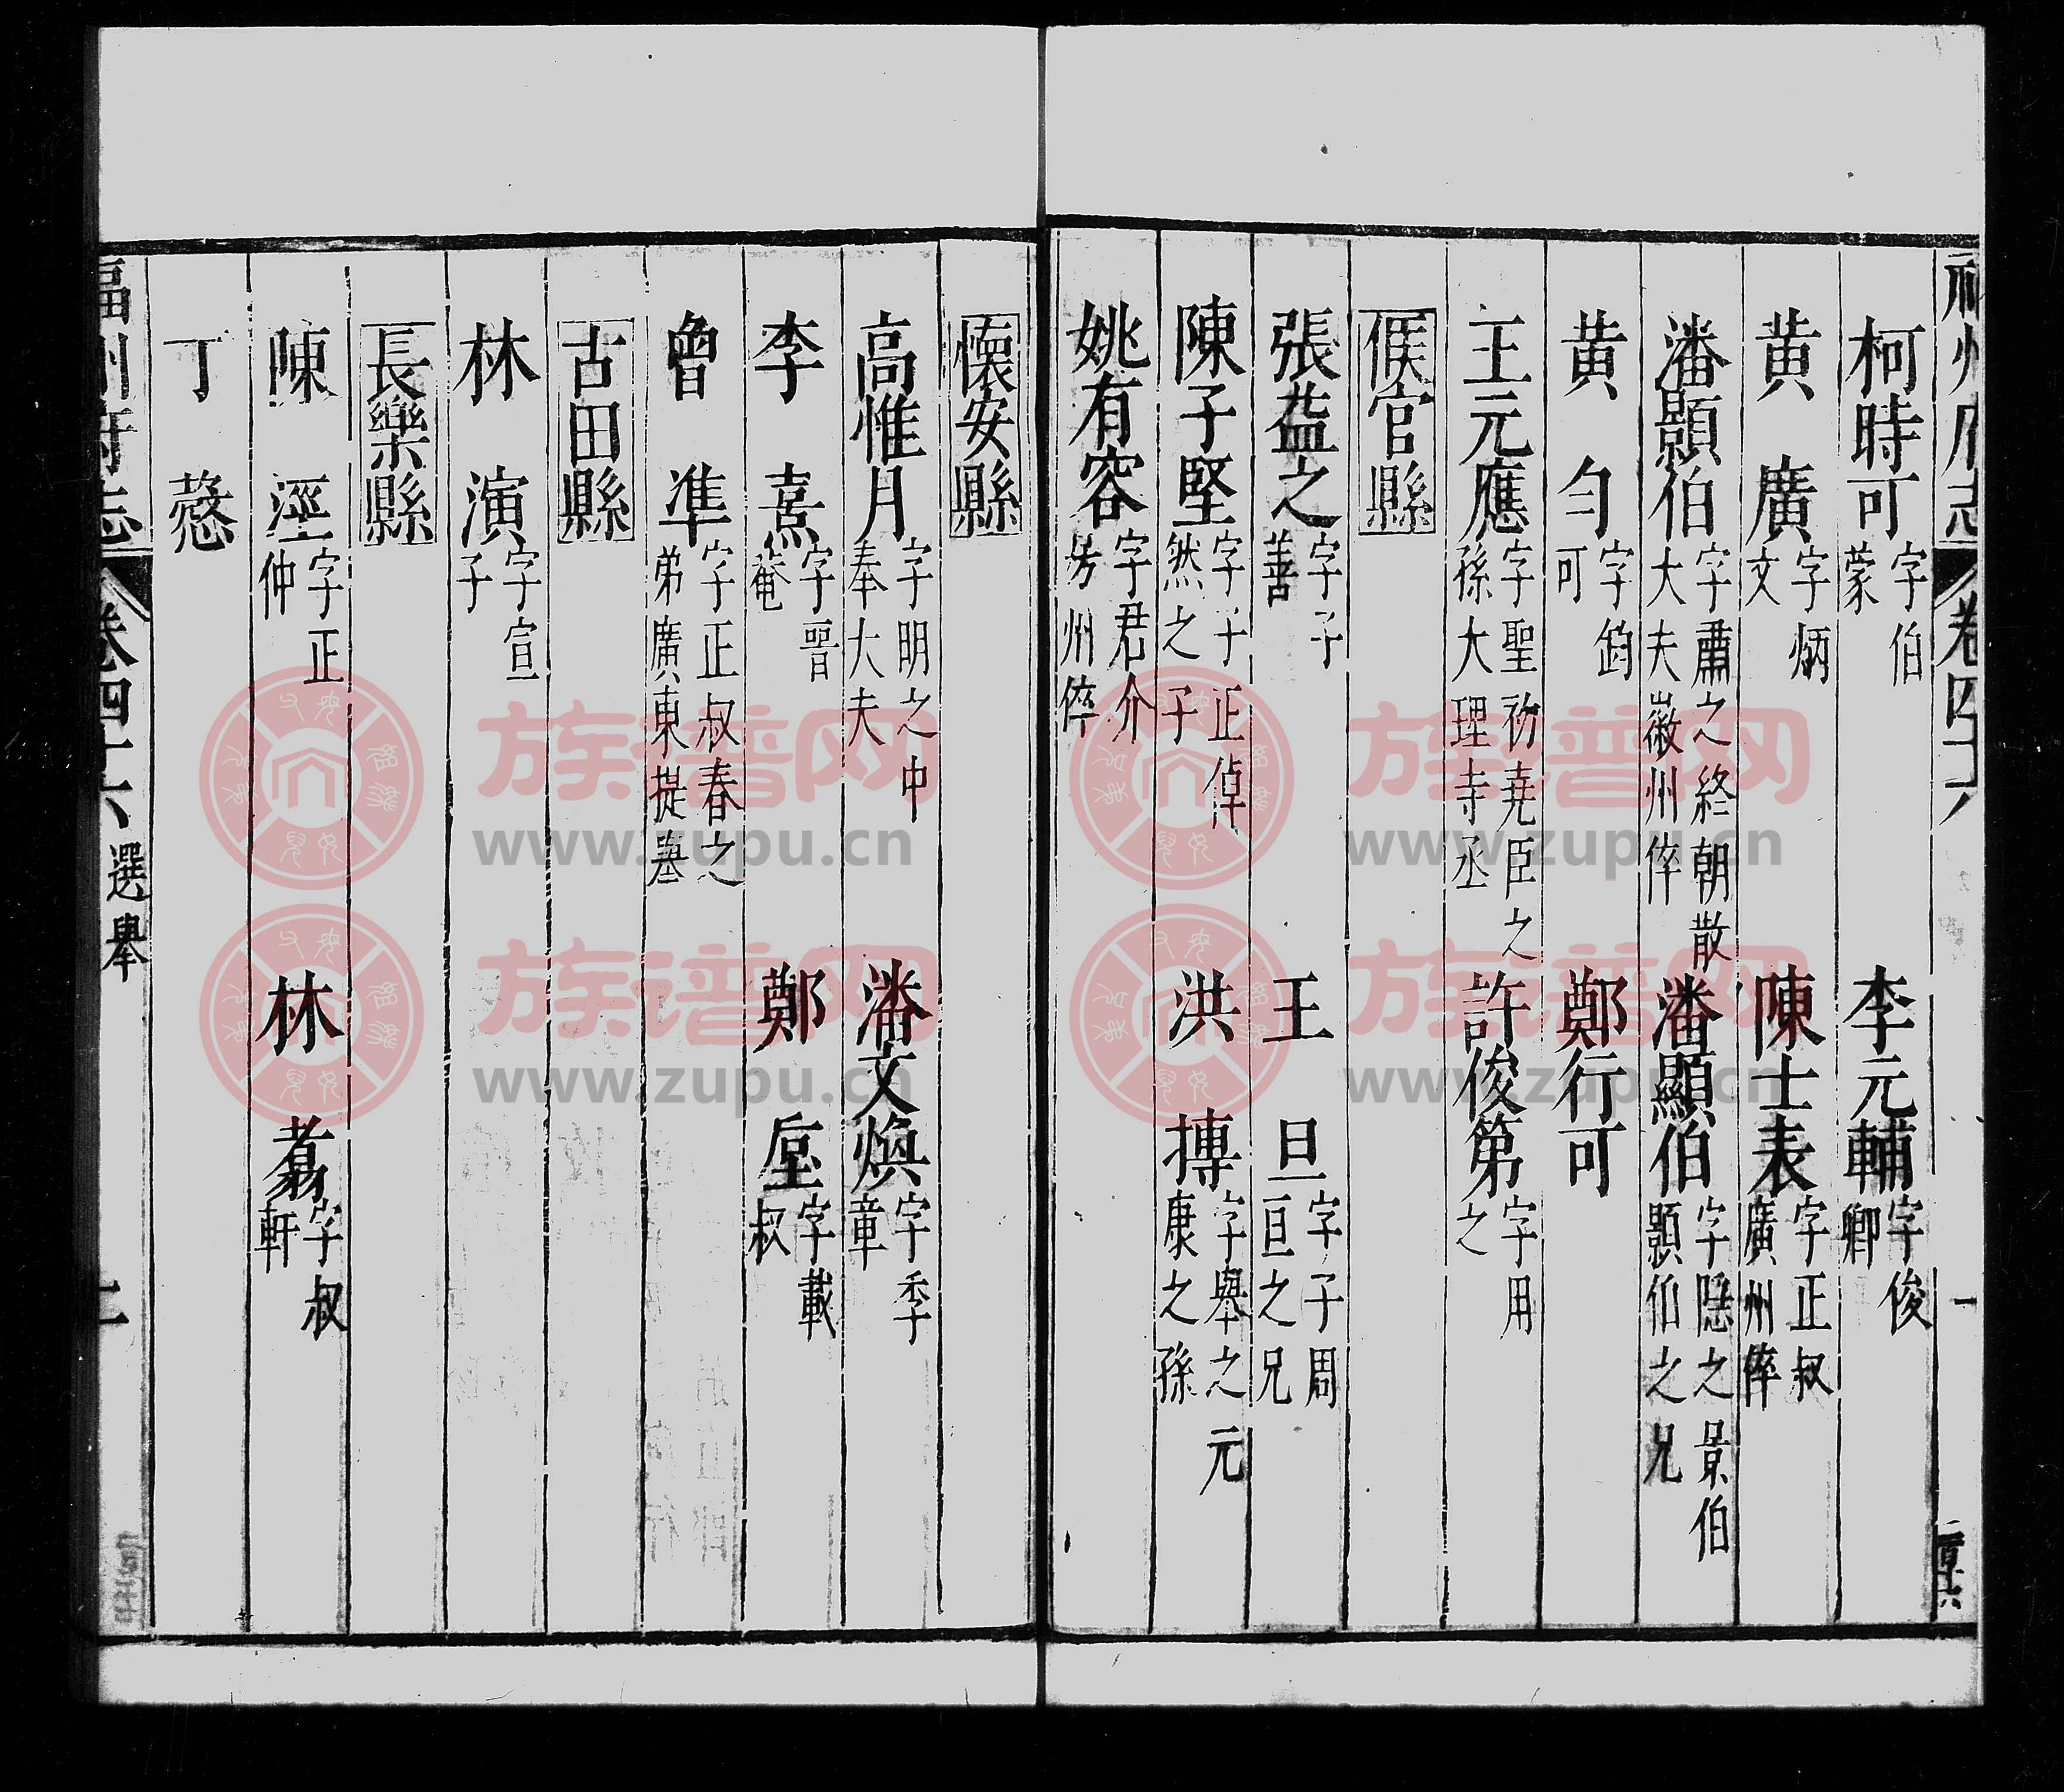 福州府志 卷四十六 一
柯時可 字伯蒙 李元輔 字俊卿
黄廣 字炳文 陳士表 字正叔廣州倅
潘顥伯 字肅之終朝散大夫徽州倅 潘顯伯 字隱之景伯顥伯之兄
黄勻 字鈞可 鄭行可
王元應 字聖礽堯臣之孫大理寺丞 許俊第 字用之
侯官縣
張益之 字子善 王旦 字子周亘之兄
陳子堅 字子正倬然之子 洪摶 字舉之元康之孫
姚有容 字君介 州倅
懷安縣
高惟月 字明之中奉大夫 潘文煥 字季章
李熹 字晉菴 鄭垕 字載叔
曾準 字正叔春之弟廣東提舉
古田縣
林演 字宣子
長樂縣
陳涇 字正仲 林翥 字叔軒
丁愨
福州府志 卷四十六 選舉
族谱网
www.zupu.cn
族谱网
www.zupu.cn
族谱网
www.zupu.cn
族谱网
www.zupu.cn